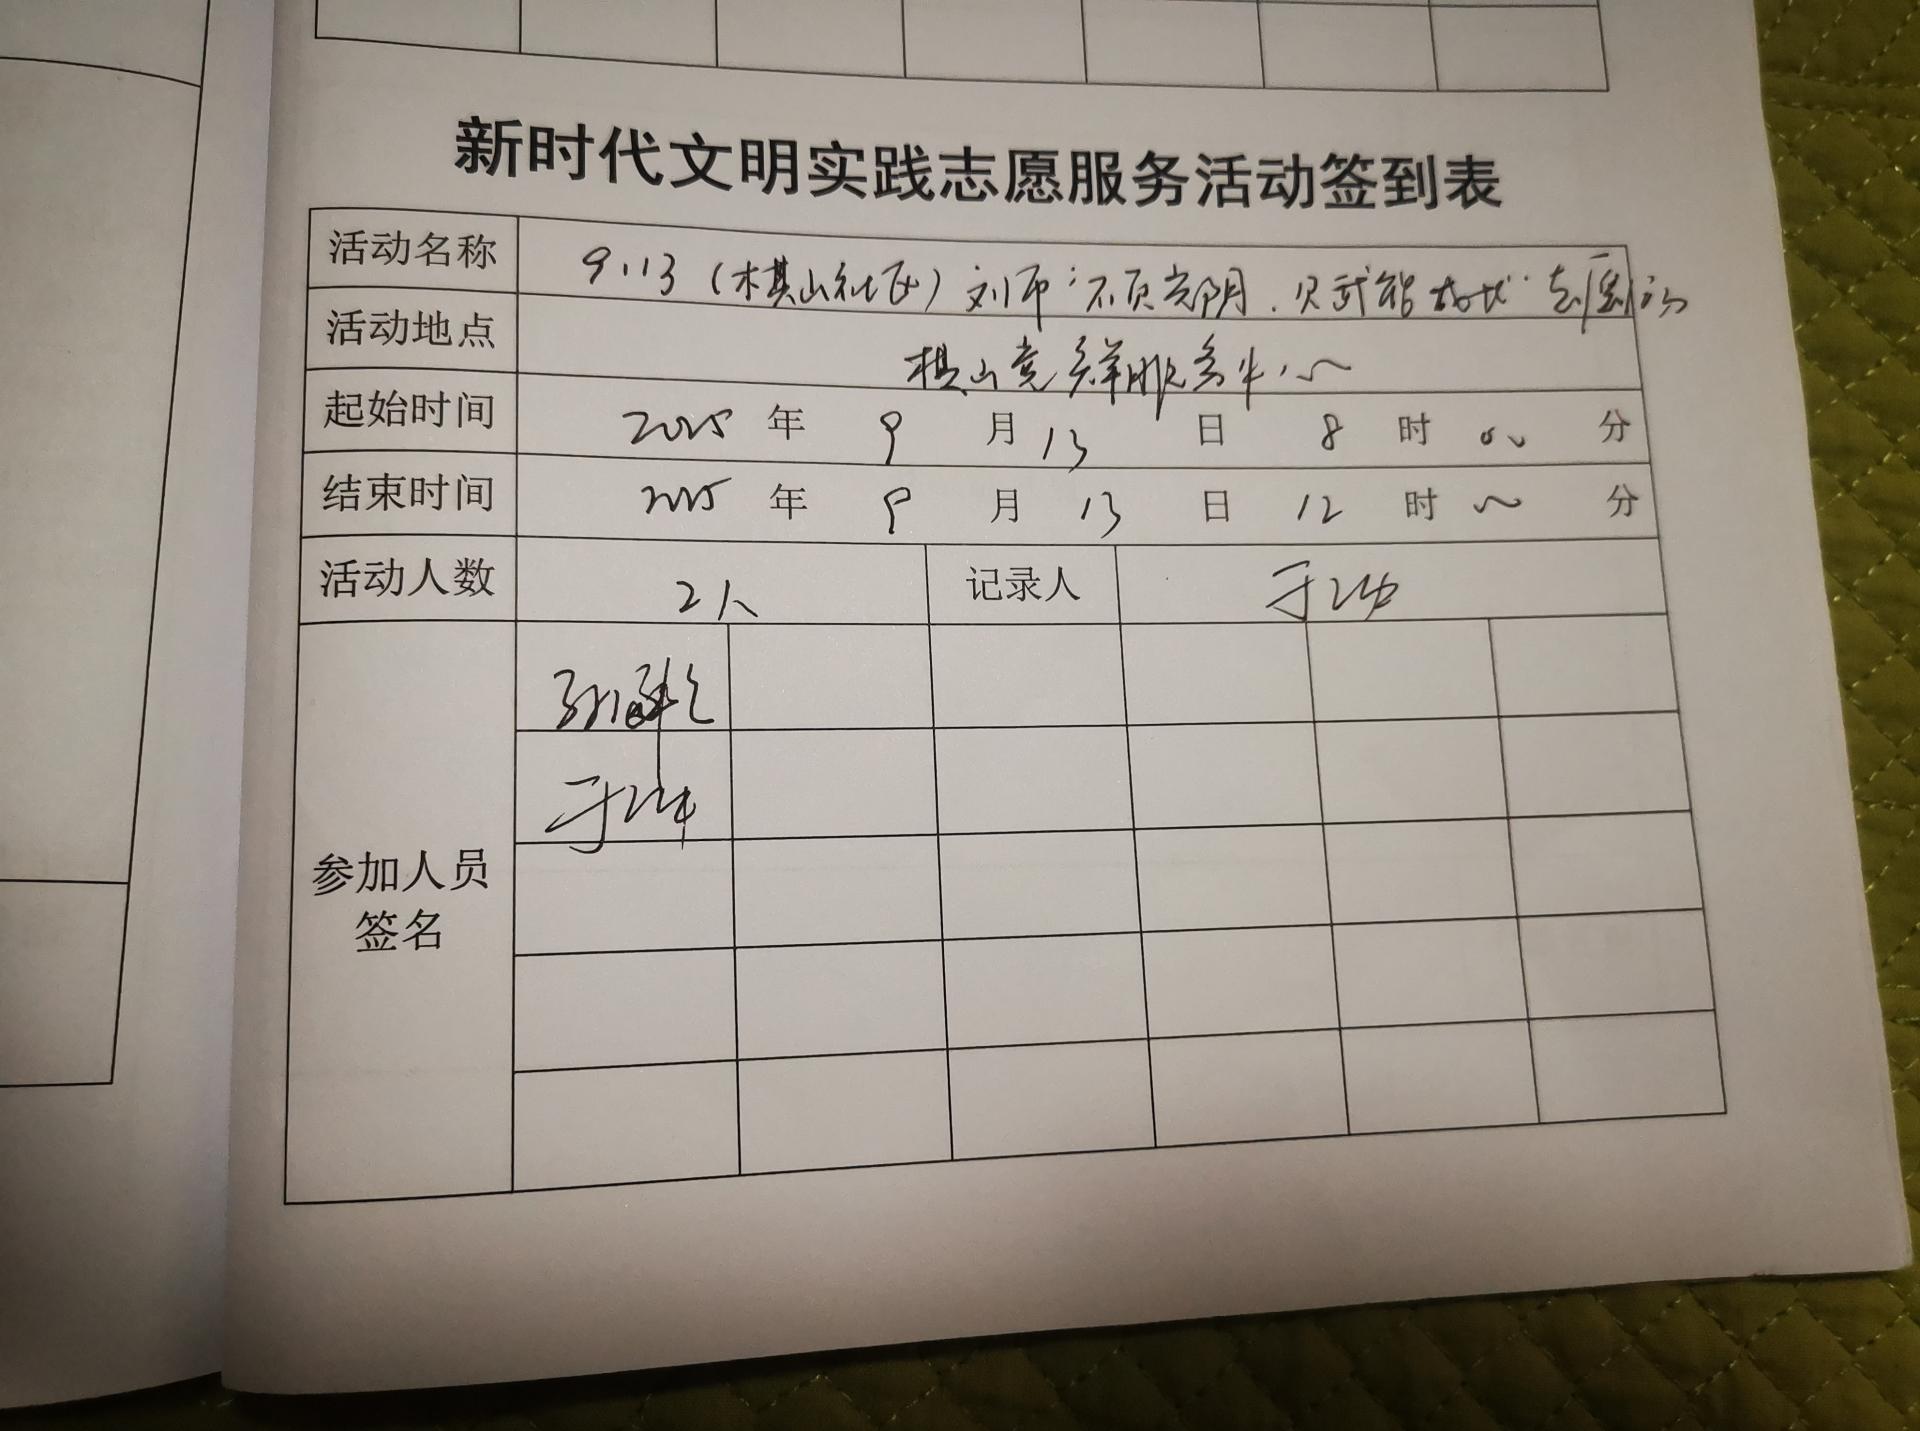 新时代文明实践志愿服务活动签到表
活动名称 9.13（棋山社区）刘师“不负光阴、只武能
活动地点 棋山党群服务中心
起始时间 2025 年 9 月 13 日 8 时 00 分
结束时间 2025 年 9 月 13 日 12 时 分
活动人数 2人 记录人 于
参加人员
签名